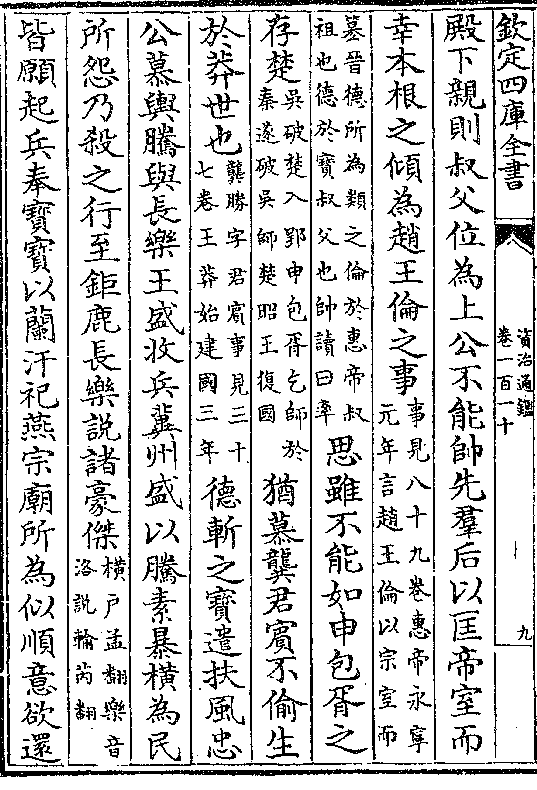 欽定四庫全書
資治通鑑
卷一百一十
九
殿下親則叔父位為上公不能帥先羣后以匡帝室而
幸本根之傾為趙王倫之事
事見八十九卷惠帝永寧
元年言趙王倫以宗室而
墓晉德所為類之倫於惠帝叔
祖也德於寶叔父也帥讀曰率
思雖不能如申包胥之
存楚
吳破楚入郢申包胥乞師於
秦遂破吳師楚昭王復國
猶慕龔君賓不偷生
於莽世也
龔勝字君賓事見三十
七卷王莽始建國三年
德斬之寶遣扶風忠
公慕輿騰與長樂王盛收兵冀州盛以騰素暴橫為民
所怨乃殺之行至鉅鹿長樂說諸豪傑
橫戶孟翻樂音
洛說輸芮翻
皆願起兵奉寶寶以蘭汗祀燕宗廟所為似順意欲還